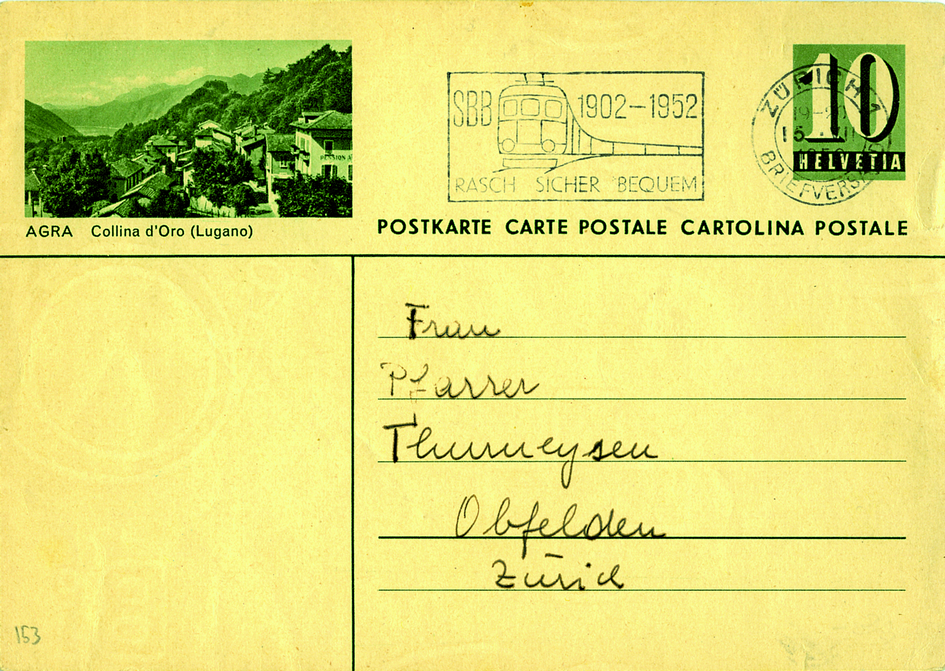 PENSION
AGRA Collina d'Oro (Lugano)
SBB 1902-1952
RASCH SICHER BEQUEM
ZÜRICH
BRIEFVERS
10
HELVETIA
POSTKARTE CARTE POSTALE CARTOLINA POSTALE
Frau
Pfarrer
Thurneysen
Obfelden
Zürich
153